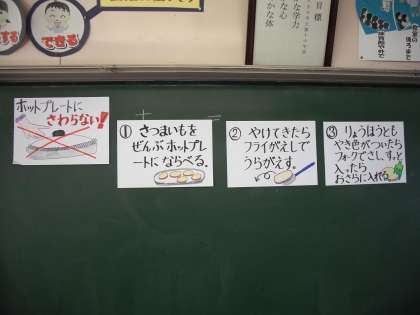 する
できる
目標
ホットプレートに
さわらない!
① さつまいもを
ぜんぶホットプレ
ートにならべる.
② やけてきたら
フライがえしで
うらがえす.
③ りょうほうとも
やき色がついたら
フォークでさし、すっと
入ったら
おさらに入れる